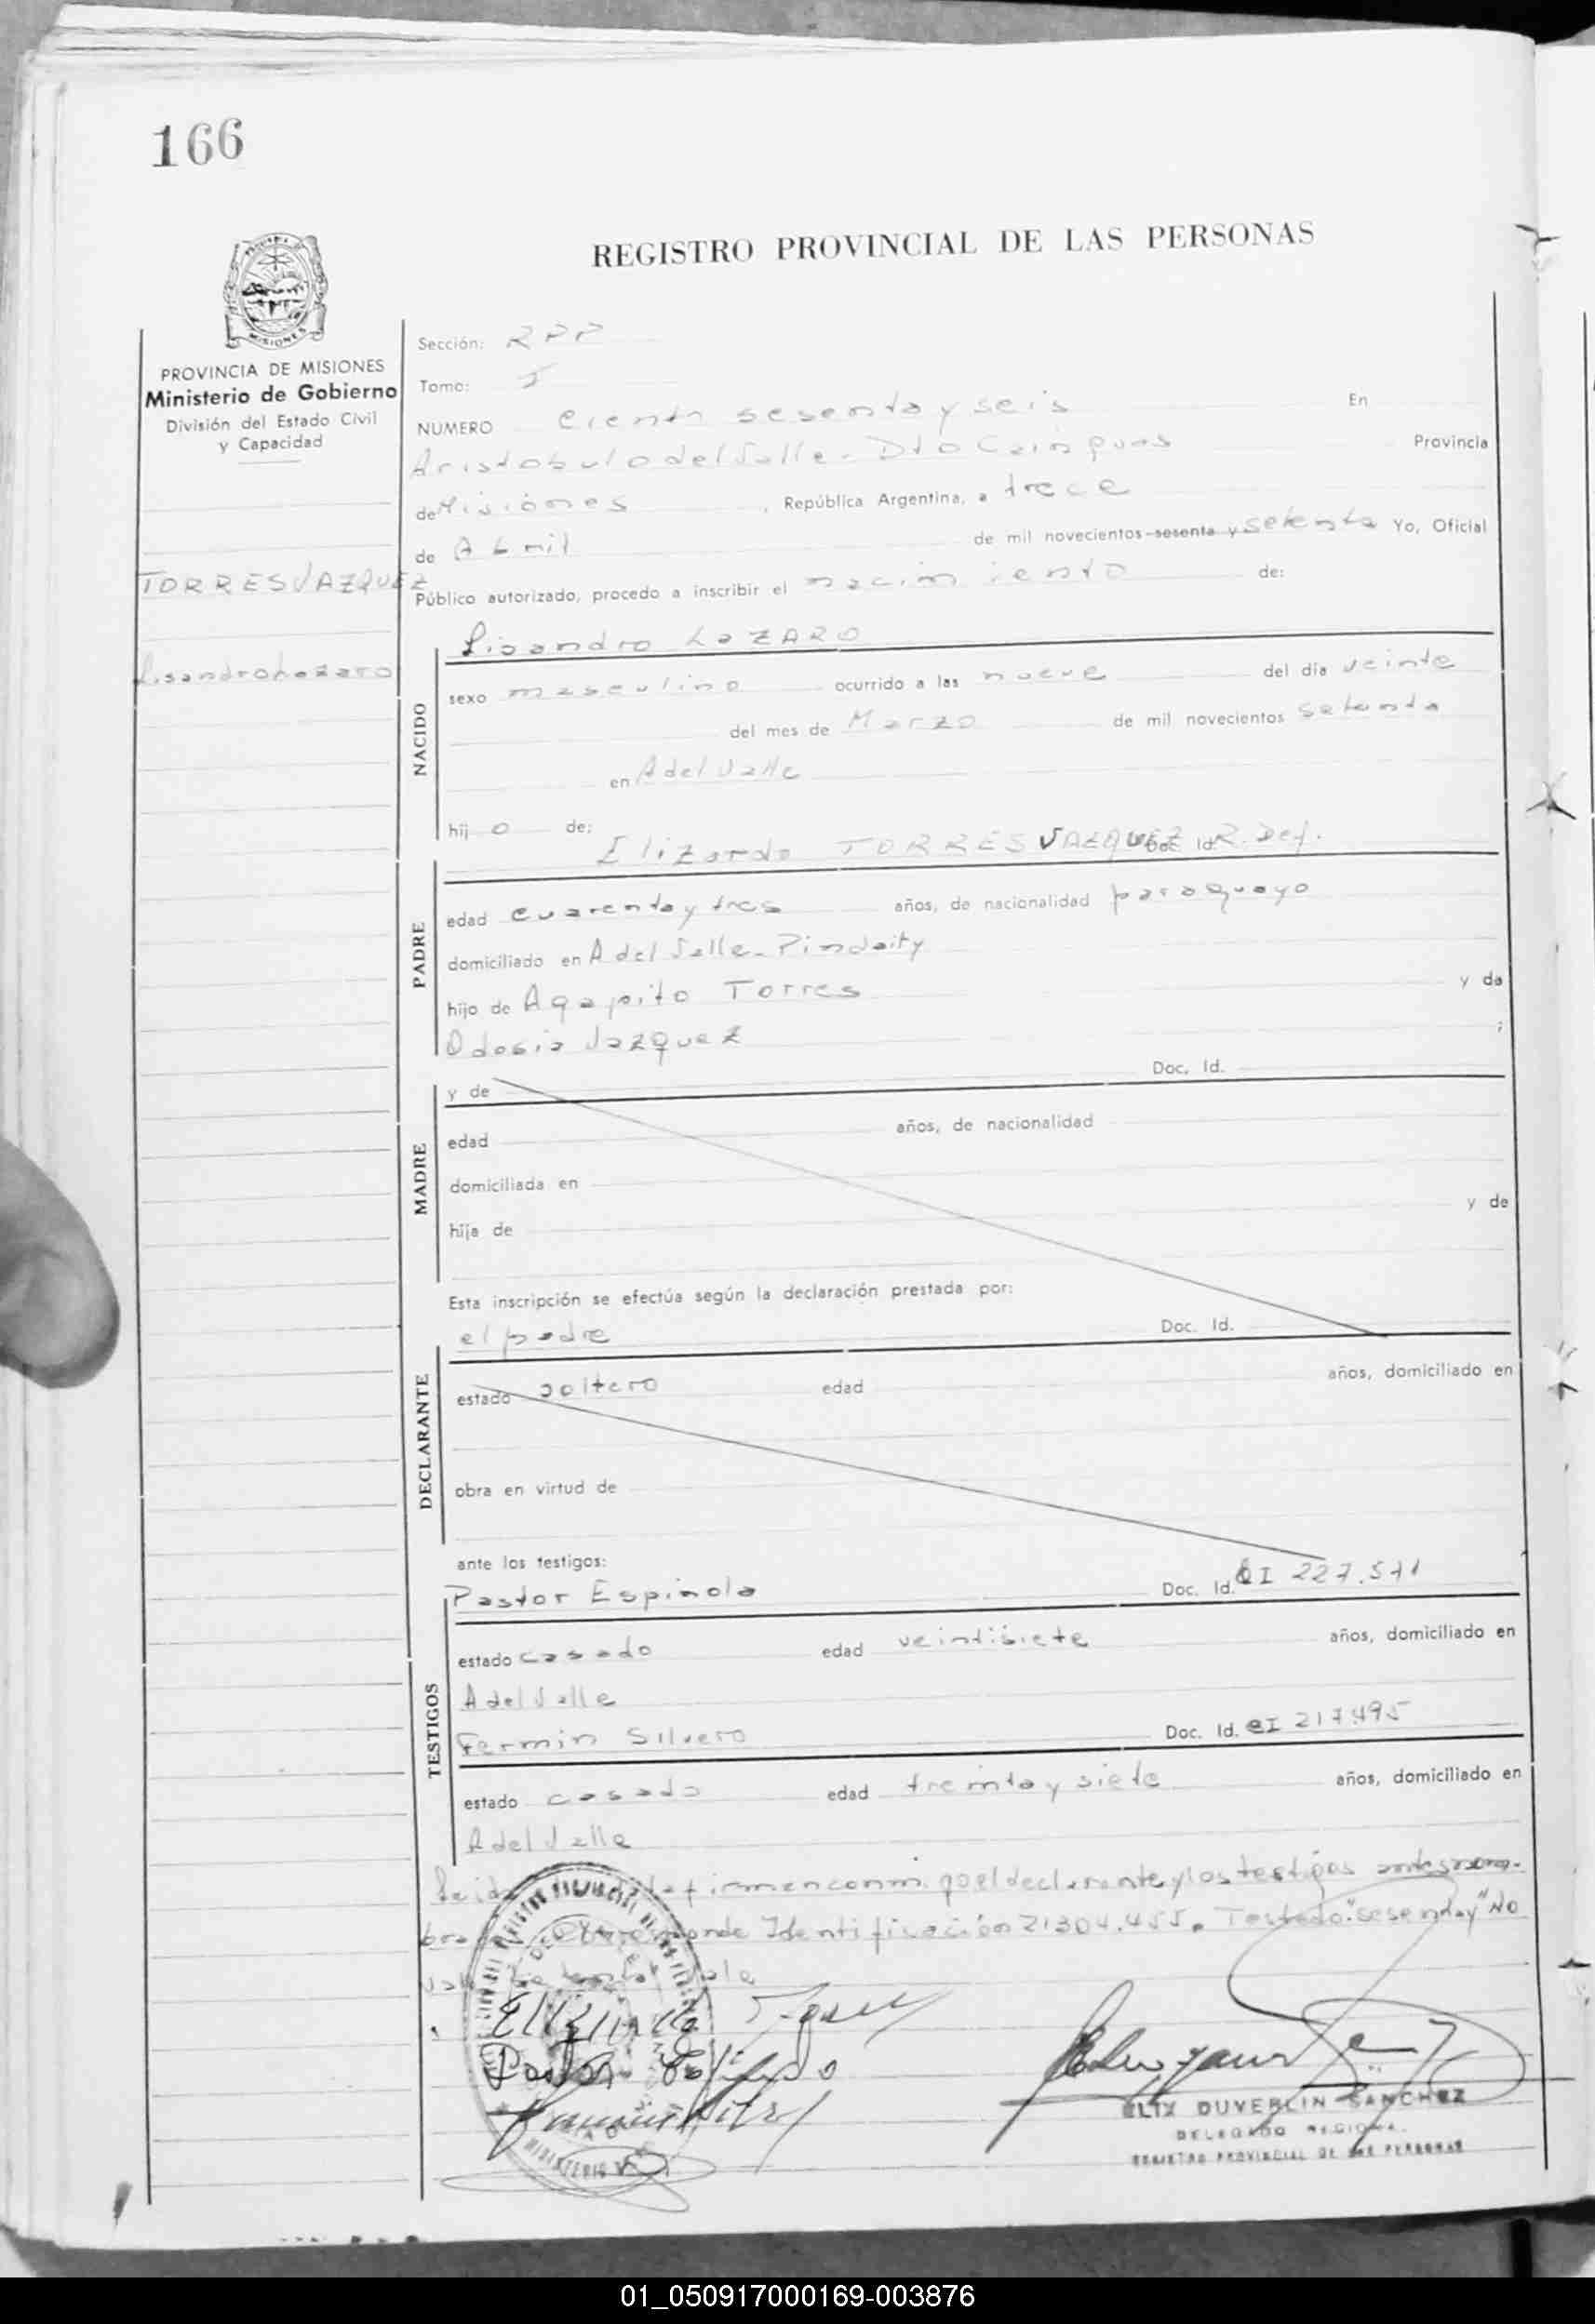 166
REGISTRO PROVINCIAL DE LAS PERSONAS
MISIONES
PROVINCIA DE MISIONES
Ministerio de Gobierno
División del Estado Civil
y Capacidad
TORRES VAZQUEZ
Lisandro Lazaro
Sección: RPP
Tomo: I
NUMERO Ciento sesenta y seis En
Aristobulo del Valle - Dto Cainguas Provincia
de Misiones, República Argentina, a trece
de Abril de mil novecientos sesenta y setenta Yo, Oficial
Público autorizado, procedo a inscribir el nacimiento de:
NACIDO
Lisandro LAZARO
sexo masculino ocurrido a las nueve del día veinte
del mes de Marzo de mil novecientos setenta
en A del Valle
hijo de:
PADRE
Elizardo TORRES VAZQUEZ Doc. Id.
edad cuarenta y tres años, de nacionalidad paraguayo
domiciliado en A del Valle - Pindaity
hijo de Agapito Torres y de
Odosia Vazquez ;
MADRE
y de Doc. Id.
edad años, de nacionalidad
domiciliada en
hija de y de
Esta inscripción se efectúa según la declaración prestada por:
DECLARANTE
el padre Doc. Id.
estado soltero edad años, domiciliado en
obra en virtud de
ante los testigos:
TESTIGOS
Pastor Espinola Doc. Id. CI 227.571
estado casado edad veintisiete años, domiciliado en
A del Valle
Fermin Silvero Doc. Id. CI 217.495
estado casado edad treinta y siete años, domiciliado en
A del Valle
firman conmigo el declarante y los testigos antes nom-
Identificación 21304.455. Testado: "sesenta y" No
vale
ELIX DUVERLIN SANCHEZ
DELEGADO REGIONAL
REGISTRO PROVINCIAL DE LAS PERSONAS
01_050917000169-003876